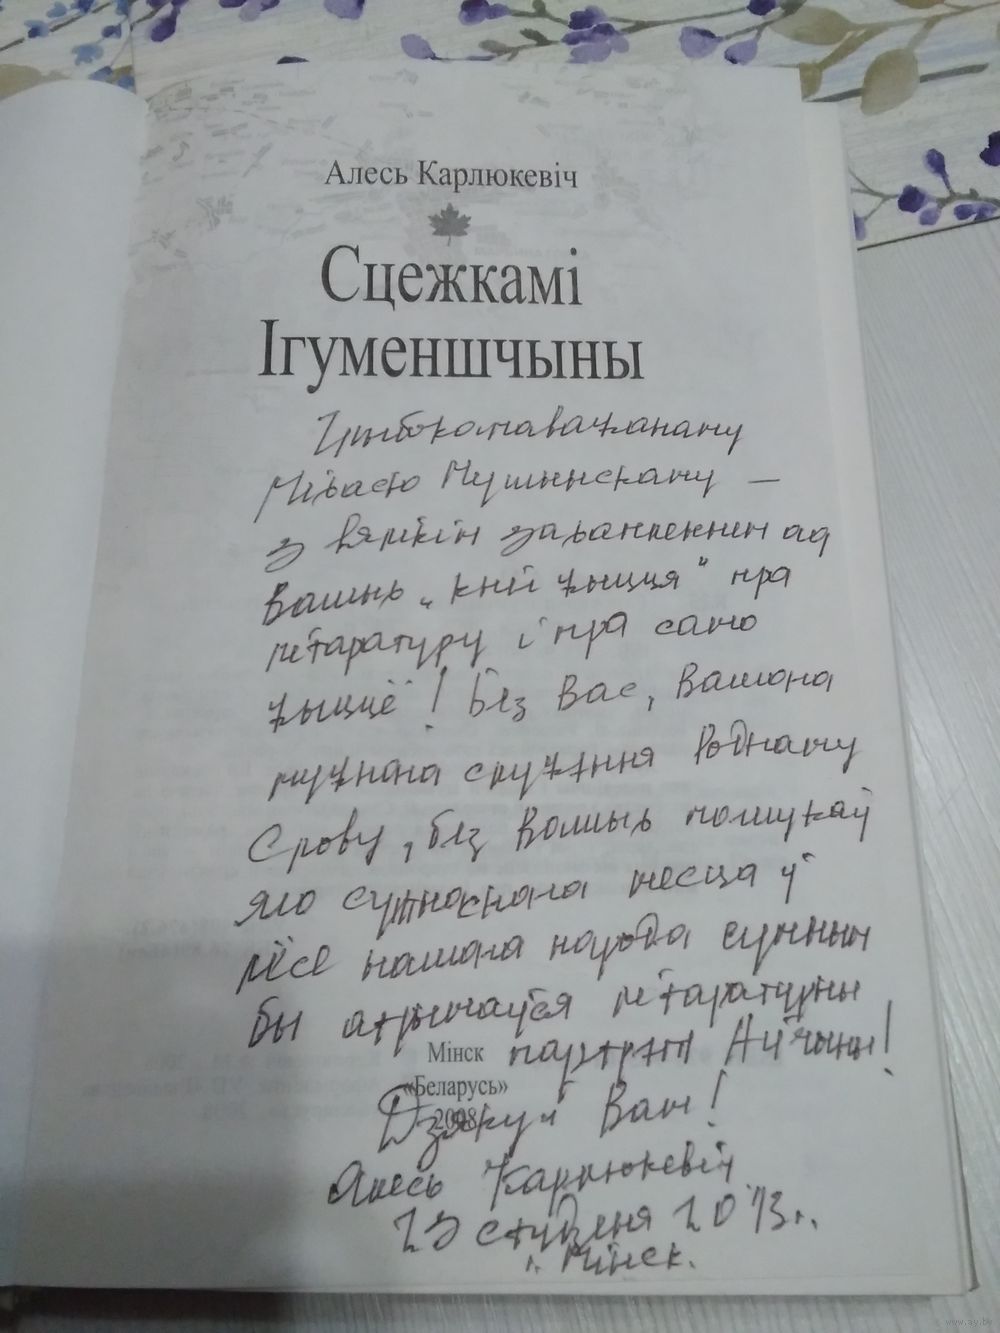 Алесь Карлюкевіч
Сцежкамі
Ігуменшчыны
Глыбокапаважанаму
Міхасю Мушынскаму —
з вялікім захапленнем ад
Вашых „кніг жыцця" пра
літаратуру і пра само
жыццё! Без Вас, Вашага
мужнага служэння Роднаму
Слову, без Вашых пошукаў
яго сутнаснага месца ў
лёсе нашага народа сумным
бы атрымаўся літаратурны
партрэт Айчыны!
Мінск
«Беларусь»
2008
Дзякуй Вам!
Алесь Карлюкевіч
23 студзеня 2013 г.
г. Мінск.
www.ay.by